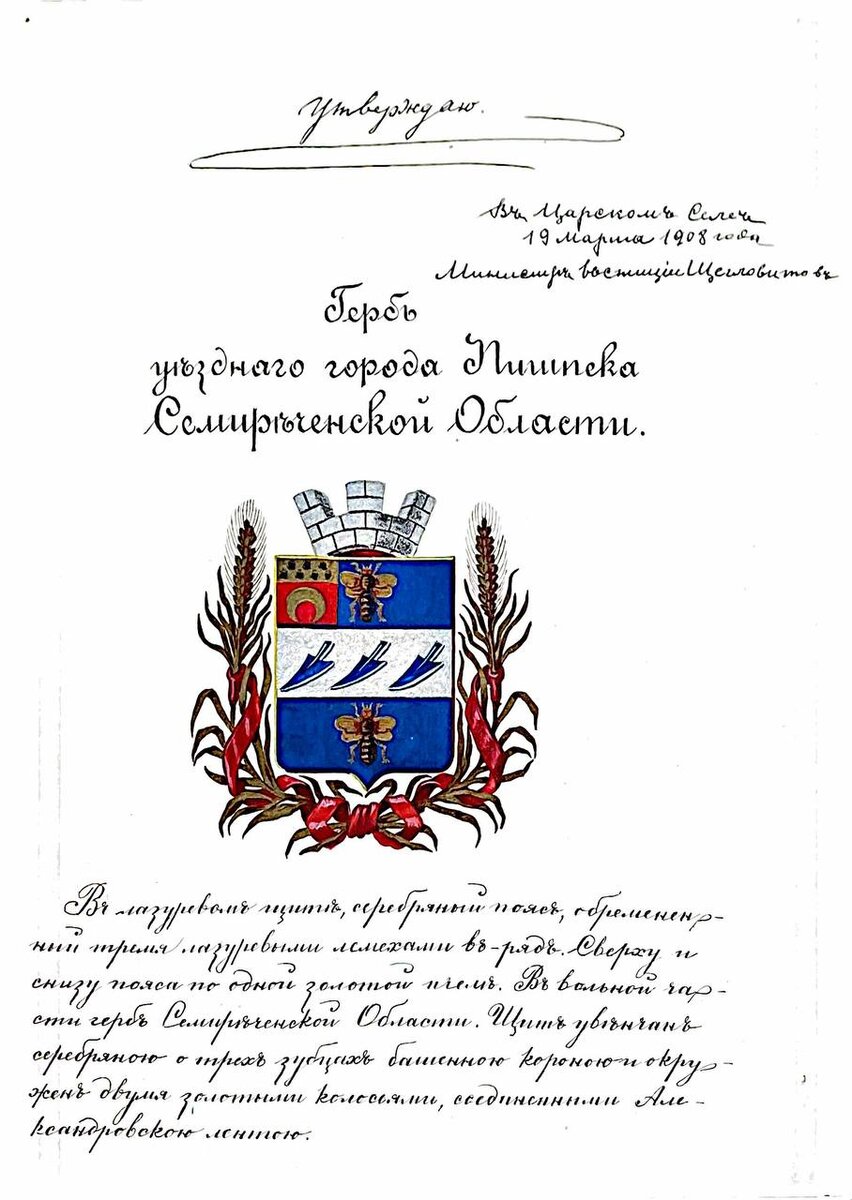 Утверждаю.
Въ Царскомъ Селѣ
19 Марта 1908 года
Министръ Юстиціи Щегловитовъ
Гербъ
уѣзднаго города Пишпека
Семирѣченской Области.
Въ лазуревомъ щитѣ, серебряный поясъ, обременен-
ный тремя лазуревыми лемехами въ-рядъ. Сверху и
снизу пояса по одной золотой пчелѣ. Въ вольной ча-
сти гербъ Семирѣченской Области. Щитъ увѣнчанъ
серебряною о трехъ зубцахъ башенною короною и окру-
женъ двумя золотыми колосьями, соединенными Але-
ксандровскою лентою.